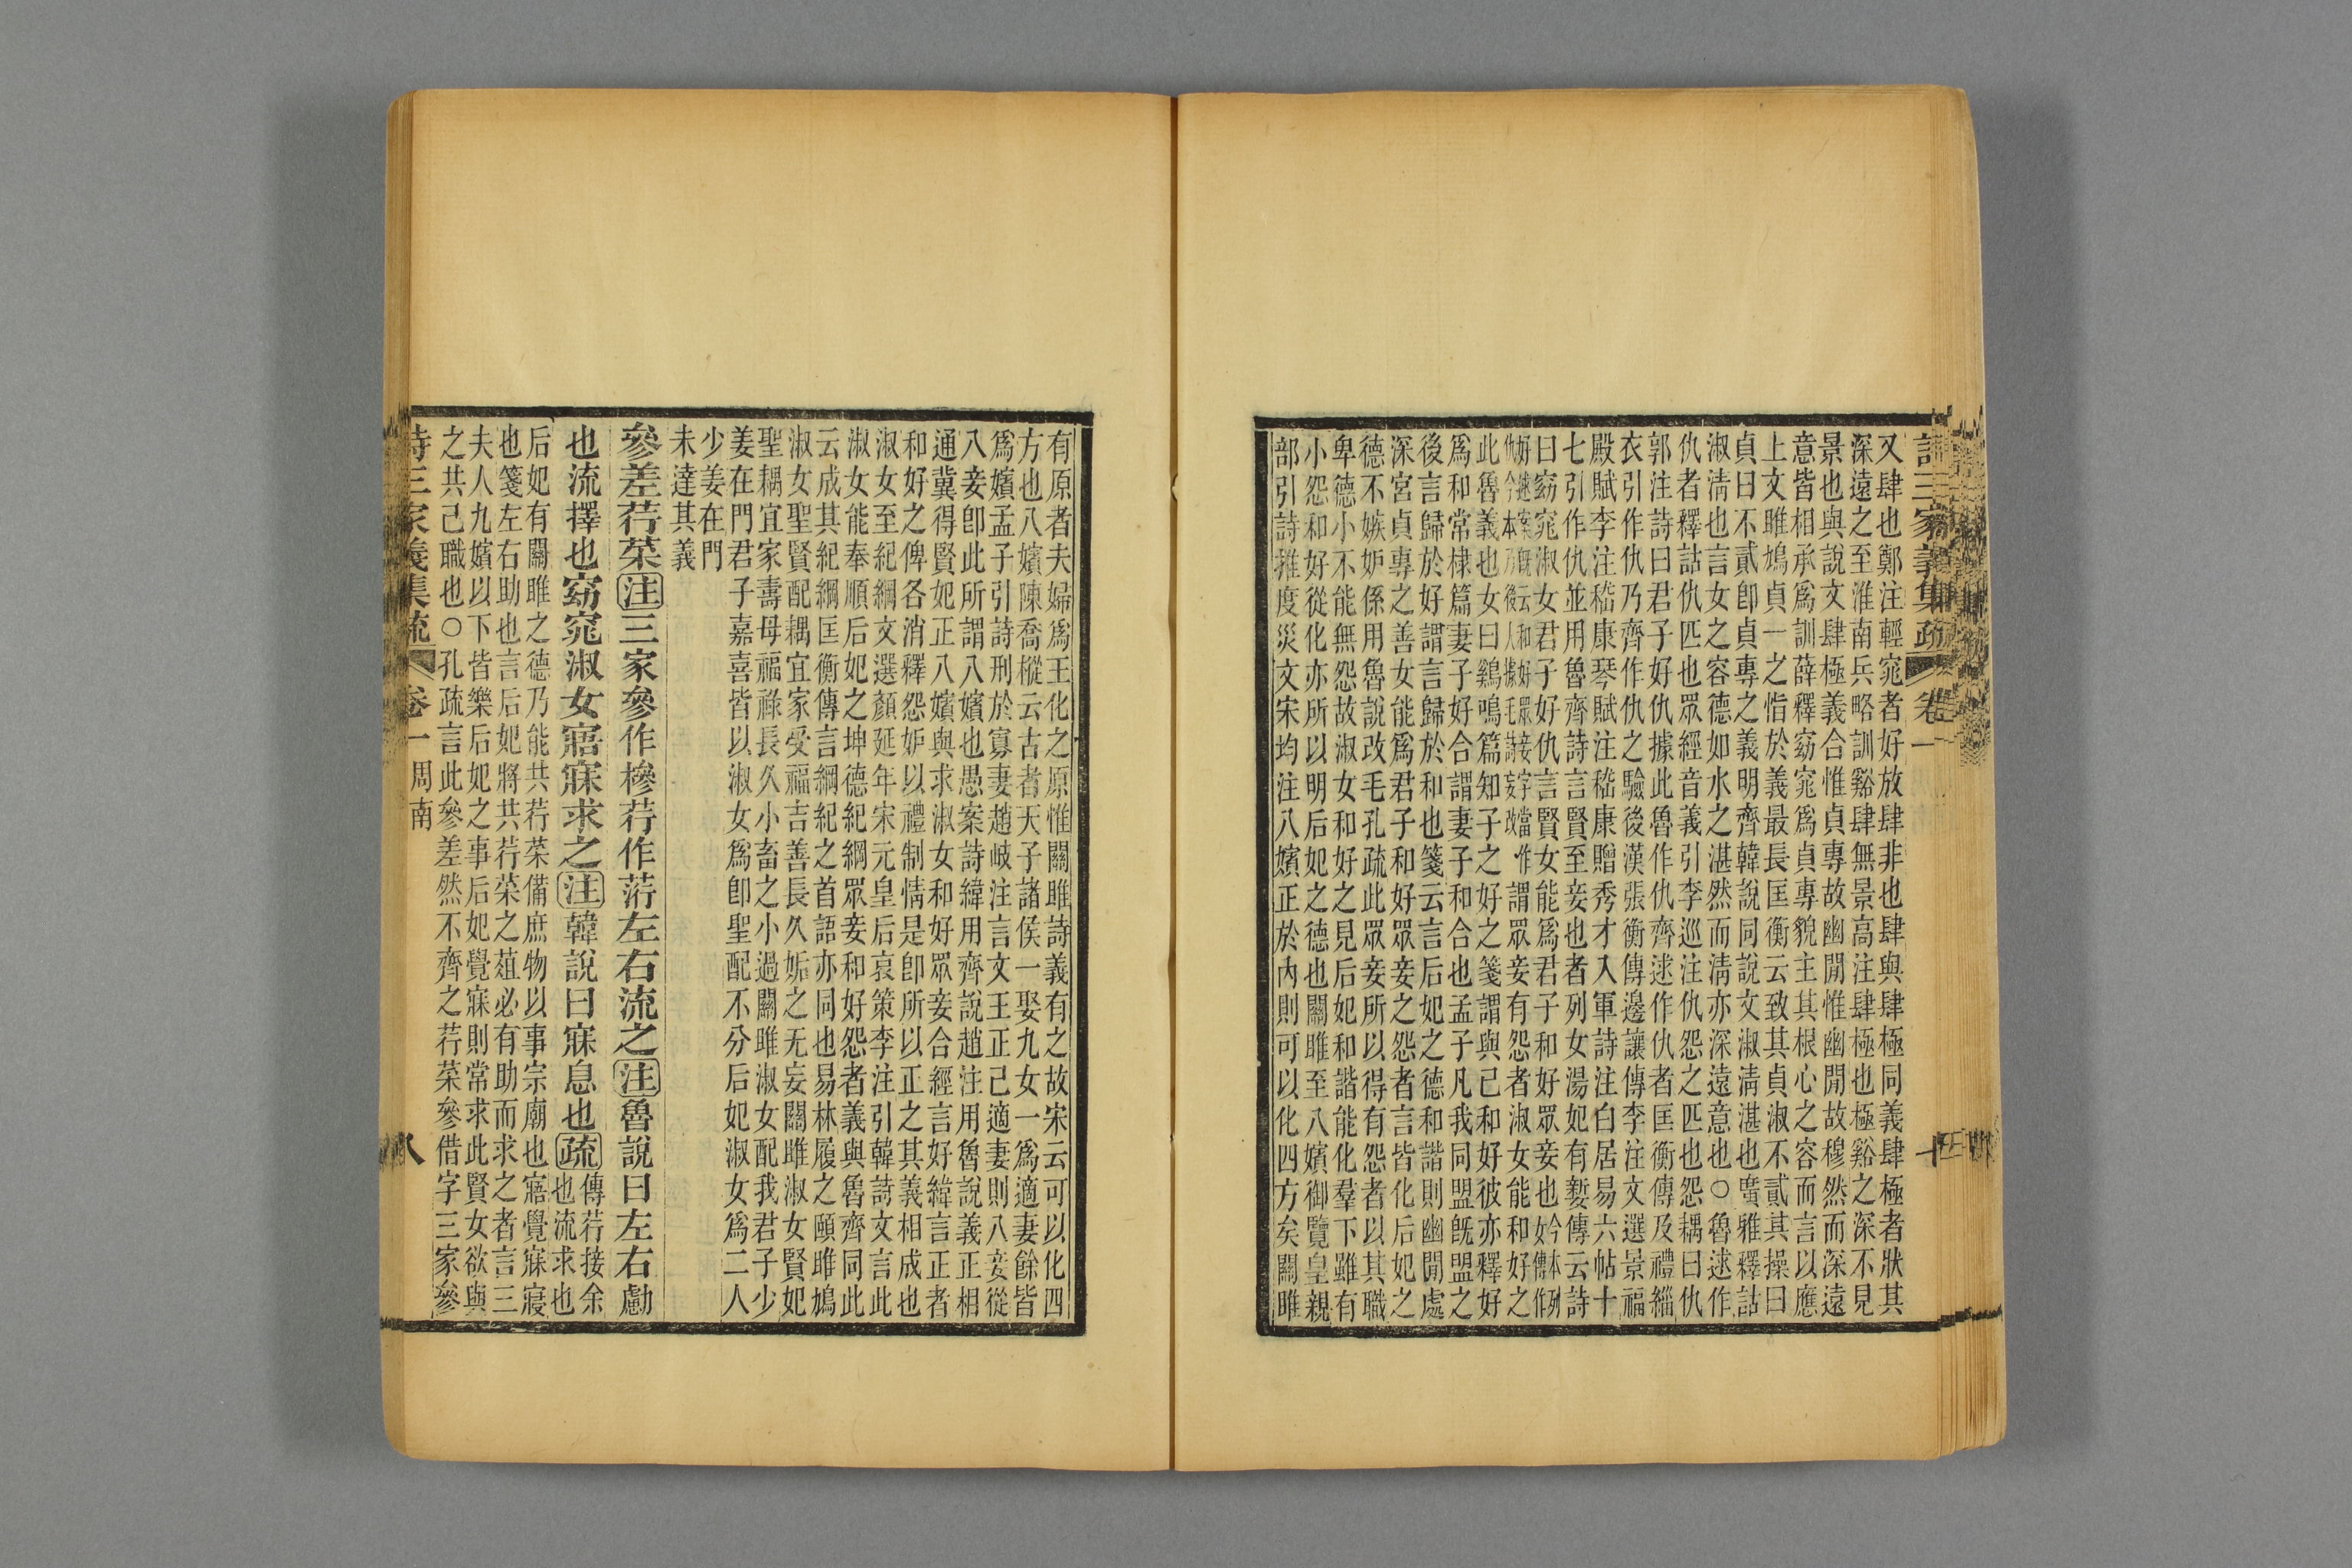 詩三家義集疏 卷一
又肆也鄭注輕窕者好放肆非也肆與肆極同義肆極者狀其
深遠之至淮南兵略訓谿肆無景高注肆極也極谿之深不見
景也與說文肆極義合惟貞專故幽閒惟幽閒故穆然而深遠
意皆相承爲訓薛釋窈窕爲貞專貌主其根心之容而言以應
上文雎鳩貞一之恉於義最長匡衡云致其貞淑不貳其操曰
貞曰不貳卽貞專之義明齊韓說同說文淑淸湛也廣雅釋詁
淑淸也言女之容德如水之湛然而淸亦深遠意也○魯逑作
仇者釋詁仇匹也眾經音義引李巡注仇怨之匹也怨耦曰仇
郭注詩曰君子好仇據此魯作仇齊逑作仇者匡衡傳及禮緇
衣引作仇乃齊作仇之驗後漢張衡傳邊讓傳李注文選景福
殿賦李注嵇康琴賦注嵇康贈秀才入軍詩注白居易六帖十
七引作仇並用魯齊詩言賢至妾也者列女湯妃有㜪傳云詩
曰窈窕淑女君子好仇言賢女能爲君子和好眾妾也妢本列傳作
好逑今案旣云和好眾妾字當作仇今本乃後人據毛詩妄改謂眾妾有怨者淑女能和好之
此魯義也女曰鷄鳴篇知子之好之箋謂與己和好彼亦釋好
爲和常棣篇妻子好合謂妻子和合也孟子凡我同盟旣盟之
後言歸於好謂言歸於和也箋云言后妃之德和諧則幽閒處
深宮貞專之善女能爲君子和好眾妾之怨者言皆化后妃之
德不嫉妒係用魯說改毛孔疏此眾妾所以得有怨者以其職
卑德小不能無怨故淑女和好之見后妃和諧能化羣下雖有
小怨和好從化亦所以明后妃之德也關雎至八嬪御覽皇親
部引詩推度災文宋均注八嬪正於內則可以化四方矣關雎
有原者夫婦爲王化之原惟關雎詩義有之故宋云可以化四
方也八嬪陳喬樅云古者天子諸侯一娶九女一爲適妻餘皆
爲嬪孟子引詩刑於寡妻趙岐注言文王正己適妻則八妾從
八妾卽此所謂八嬪也愚案詩緯用齊說趙注用魯說義正相
通冀得賢妃正八嬪與求淑女和好眾妾合經言好緯言正者
和好之俾各消釋怨妒以禮制情是卽所以正之其義相成也
淑女至紀綱文選顏延年宋元皇后哀策李注引韓詩文言此
淑女能奉順后妃之坤德紀綱眾妾和好怨者義與魯齊同此
云成其紀綱匡衡傳言綱紀之首語亦同也易林履之頤雎鳩
淑女聖賢配耦宜家受福吉善長久姤之无妄關雎淑女賢妃
聖耦宜家壽母福祿長久小畜之小過關雎淑女配我君子少
姜在門君子嘉喜皆以淑女爲卽聖配不分后妃淑女爲二人
少姜在門
未達其義
參差荇菜注三家參作槮荇作莕左右流之注魯說曰左右勴
也流擇也窈窕淑女寤寐求之注韓說曰寐息也疏傳荇接余也流求也
后妃有關雎之德乃能共荇菜備庶物以事宗廟也寤覺寐寢
也箋左右助也言后妃將共荇菜之葅必有助而求之者言三
夫人九嬪以下皆樂后妃之事后妃覺寐則常求此賢女欲與
之共己職也○孔疏言此參差然不齊之荇菜參借字三家參
詩三家義集疏 卷一 周南 八